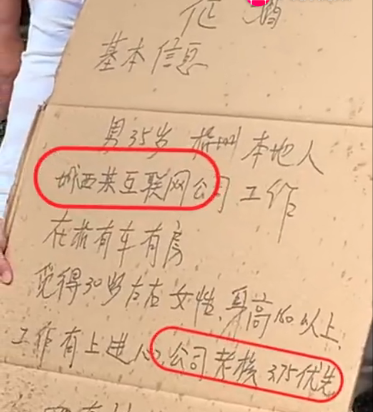 征婚
基本信息
男35岁 杭州本地人
城西某互联网公司工作
在杭有车有房
觅得30岁左右女性，身高160以上，
工作有上进心，公司考核375优先